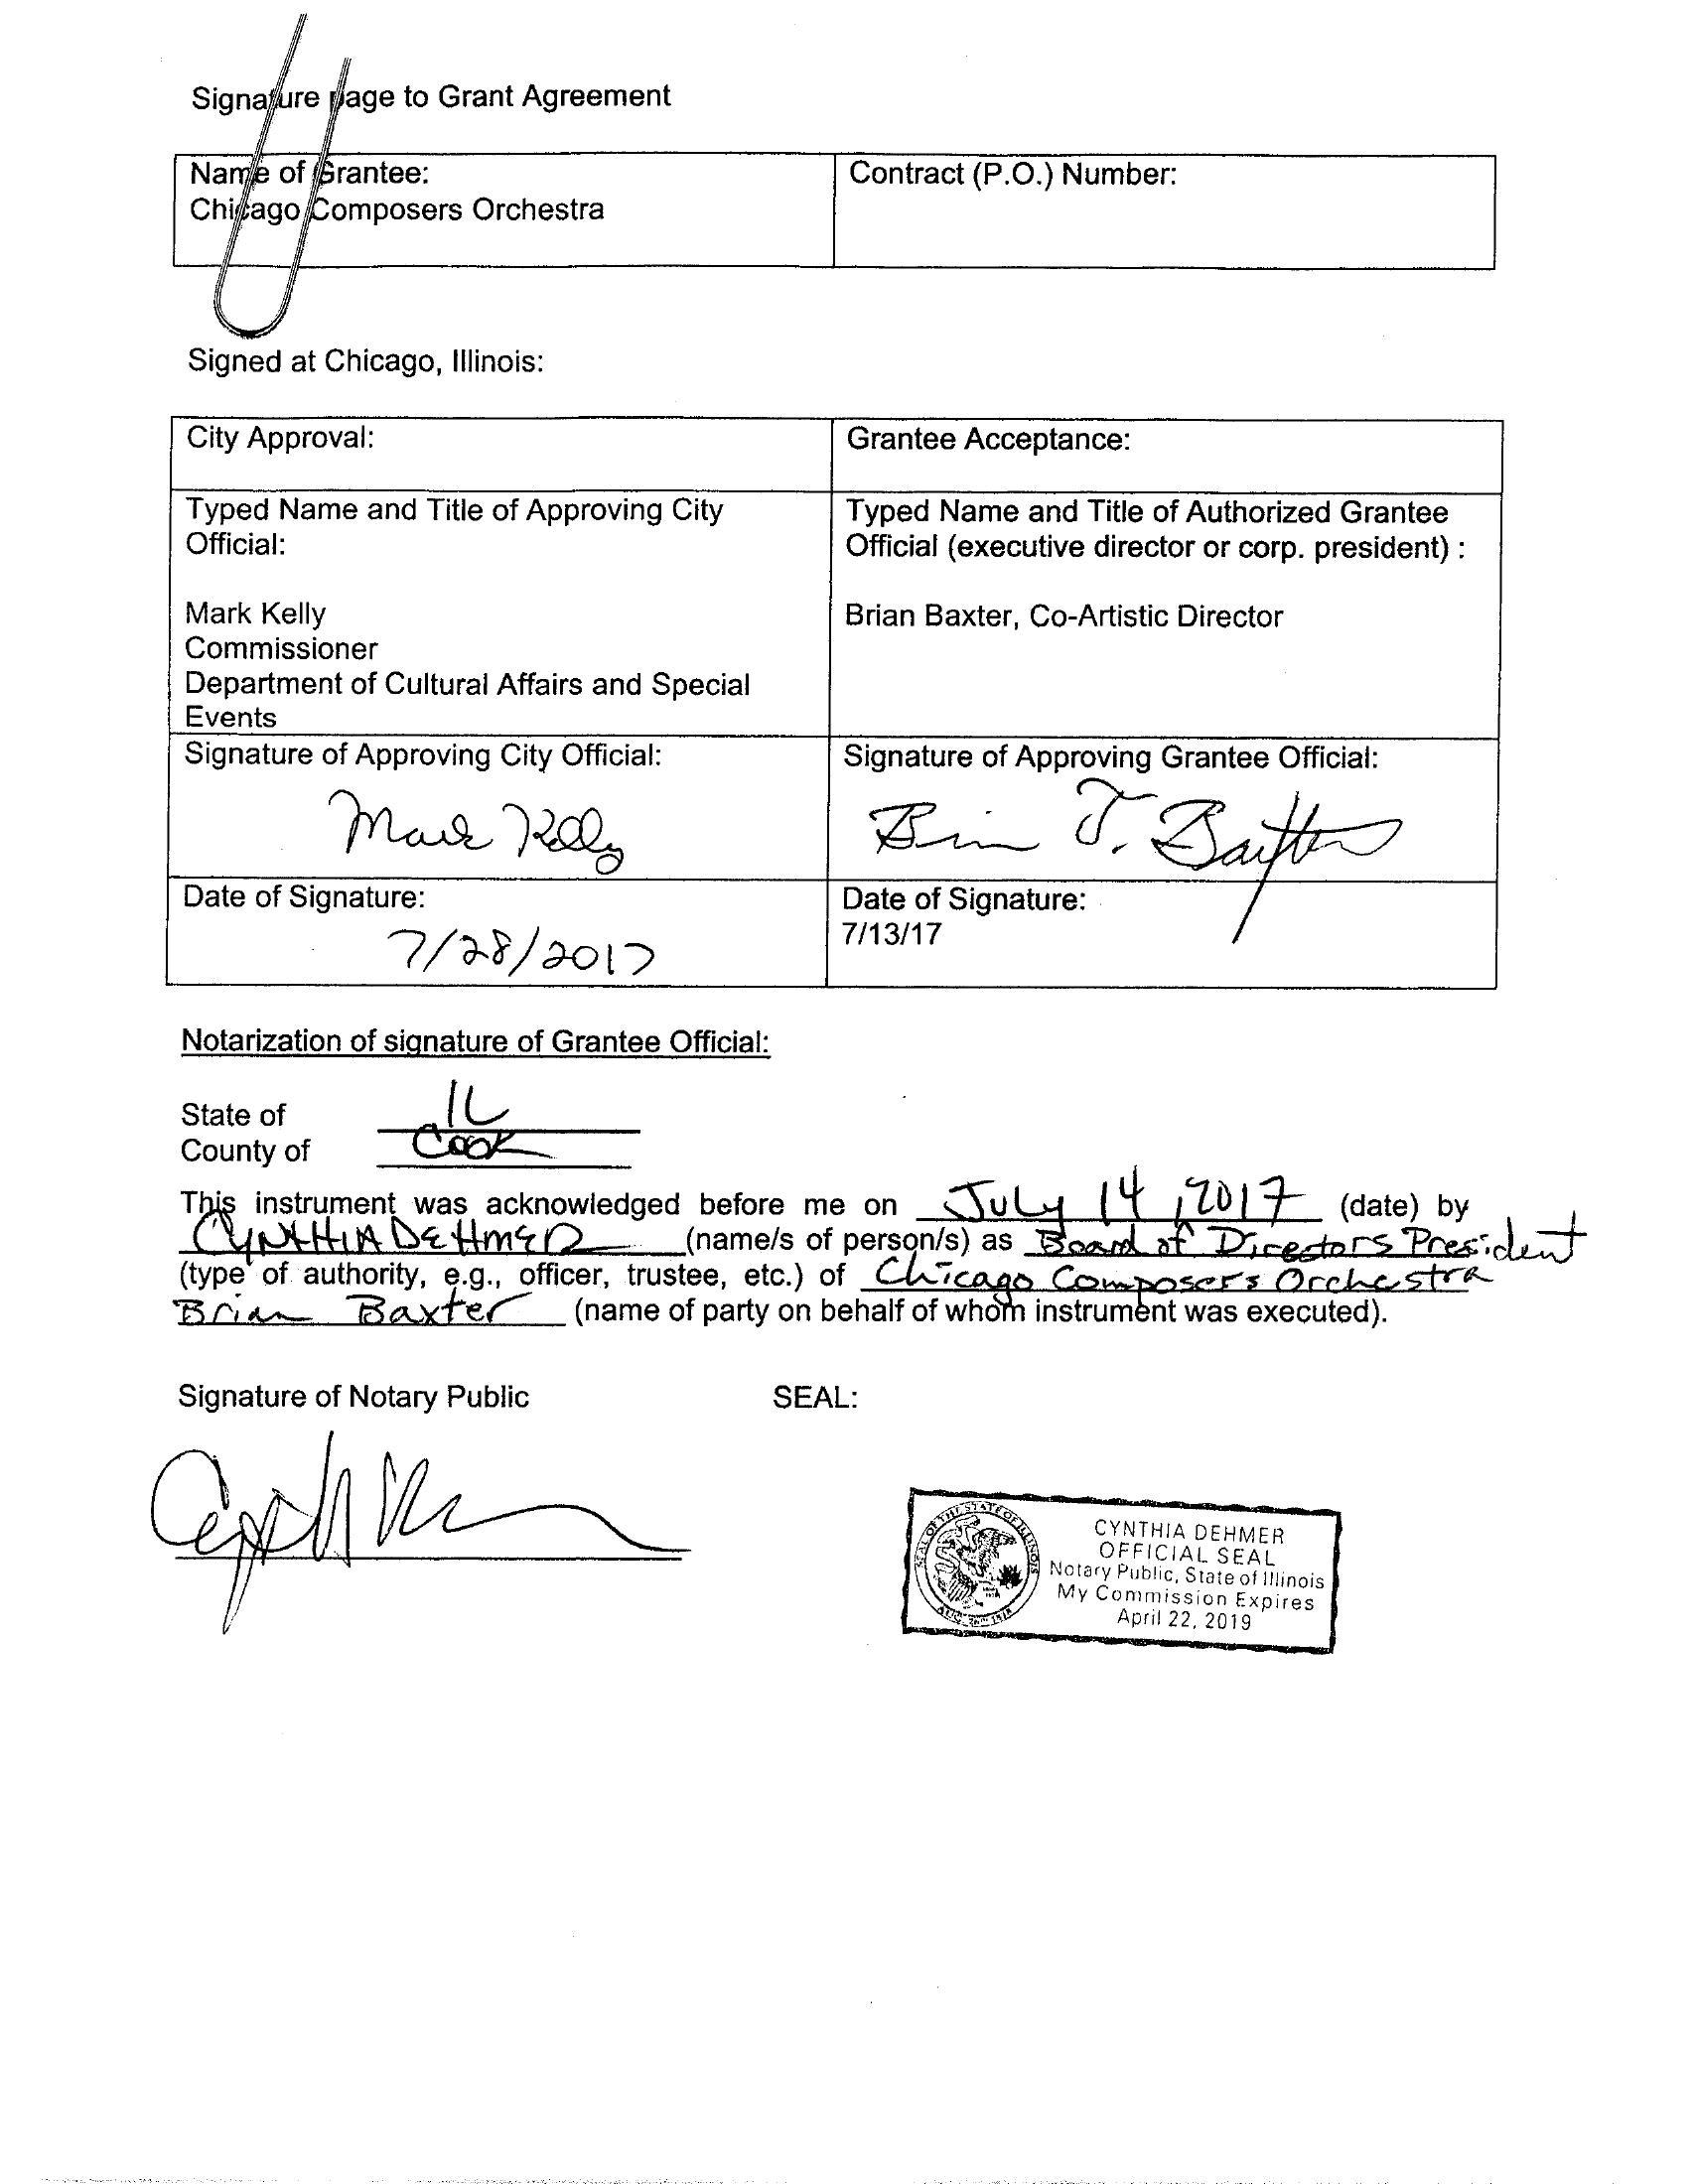 Signature page to Grant Agreement
Name of Grantee:
Chicago Composers Orchestra
Contract (P.O.) Number:
Signed at Chicago, Illinois:
City Approval:
Grantee Acceptance:
Typed Name and Title of Approving City
Official:
Mark Kelly
Commissioner
Department of Cultural Affairs and Special
Events
Typed Name and Title of Authorized Grantee
Official (executive director or corp. president) :
Brian Baxter, Co-Artistic Director
Signature of Approving City Official:
Mark Kelly
Signature of Approving Grantee Official:
Brian J. Baxter
Date of Signature:
7/28/2017
Date of Signature:
7/13/17
Notarization of signature of Grantee Official:
State of IL
County of Cook
This instrument was acknowledged before me on July 14, 2017 (date) by
CYNTHIA DEHMER (name/s of person/s) as Board of Directors President
(type of authority, e.g., officer, trustee, etc.) of Chicago Composers Orchestra
Brian Baxter (name of party on behalf of whom instrument was executed).
Signature of Notary Public
SEAL:
SEAL OF THE STATE OF ILLINOIS
AUG. 26TH 1818
CYNTHIA DEHMER
OFFICIAL SEAL
Notary Public, State of Illinois
My Commission Expires
April 22, 2019